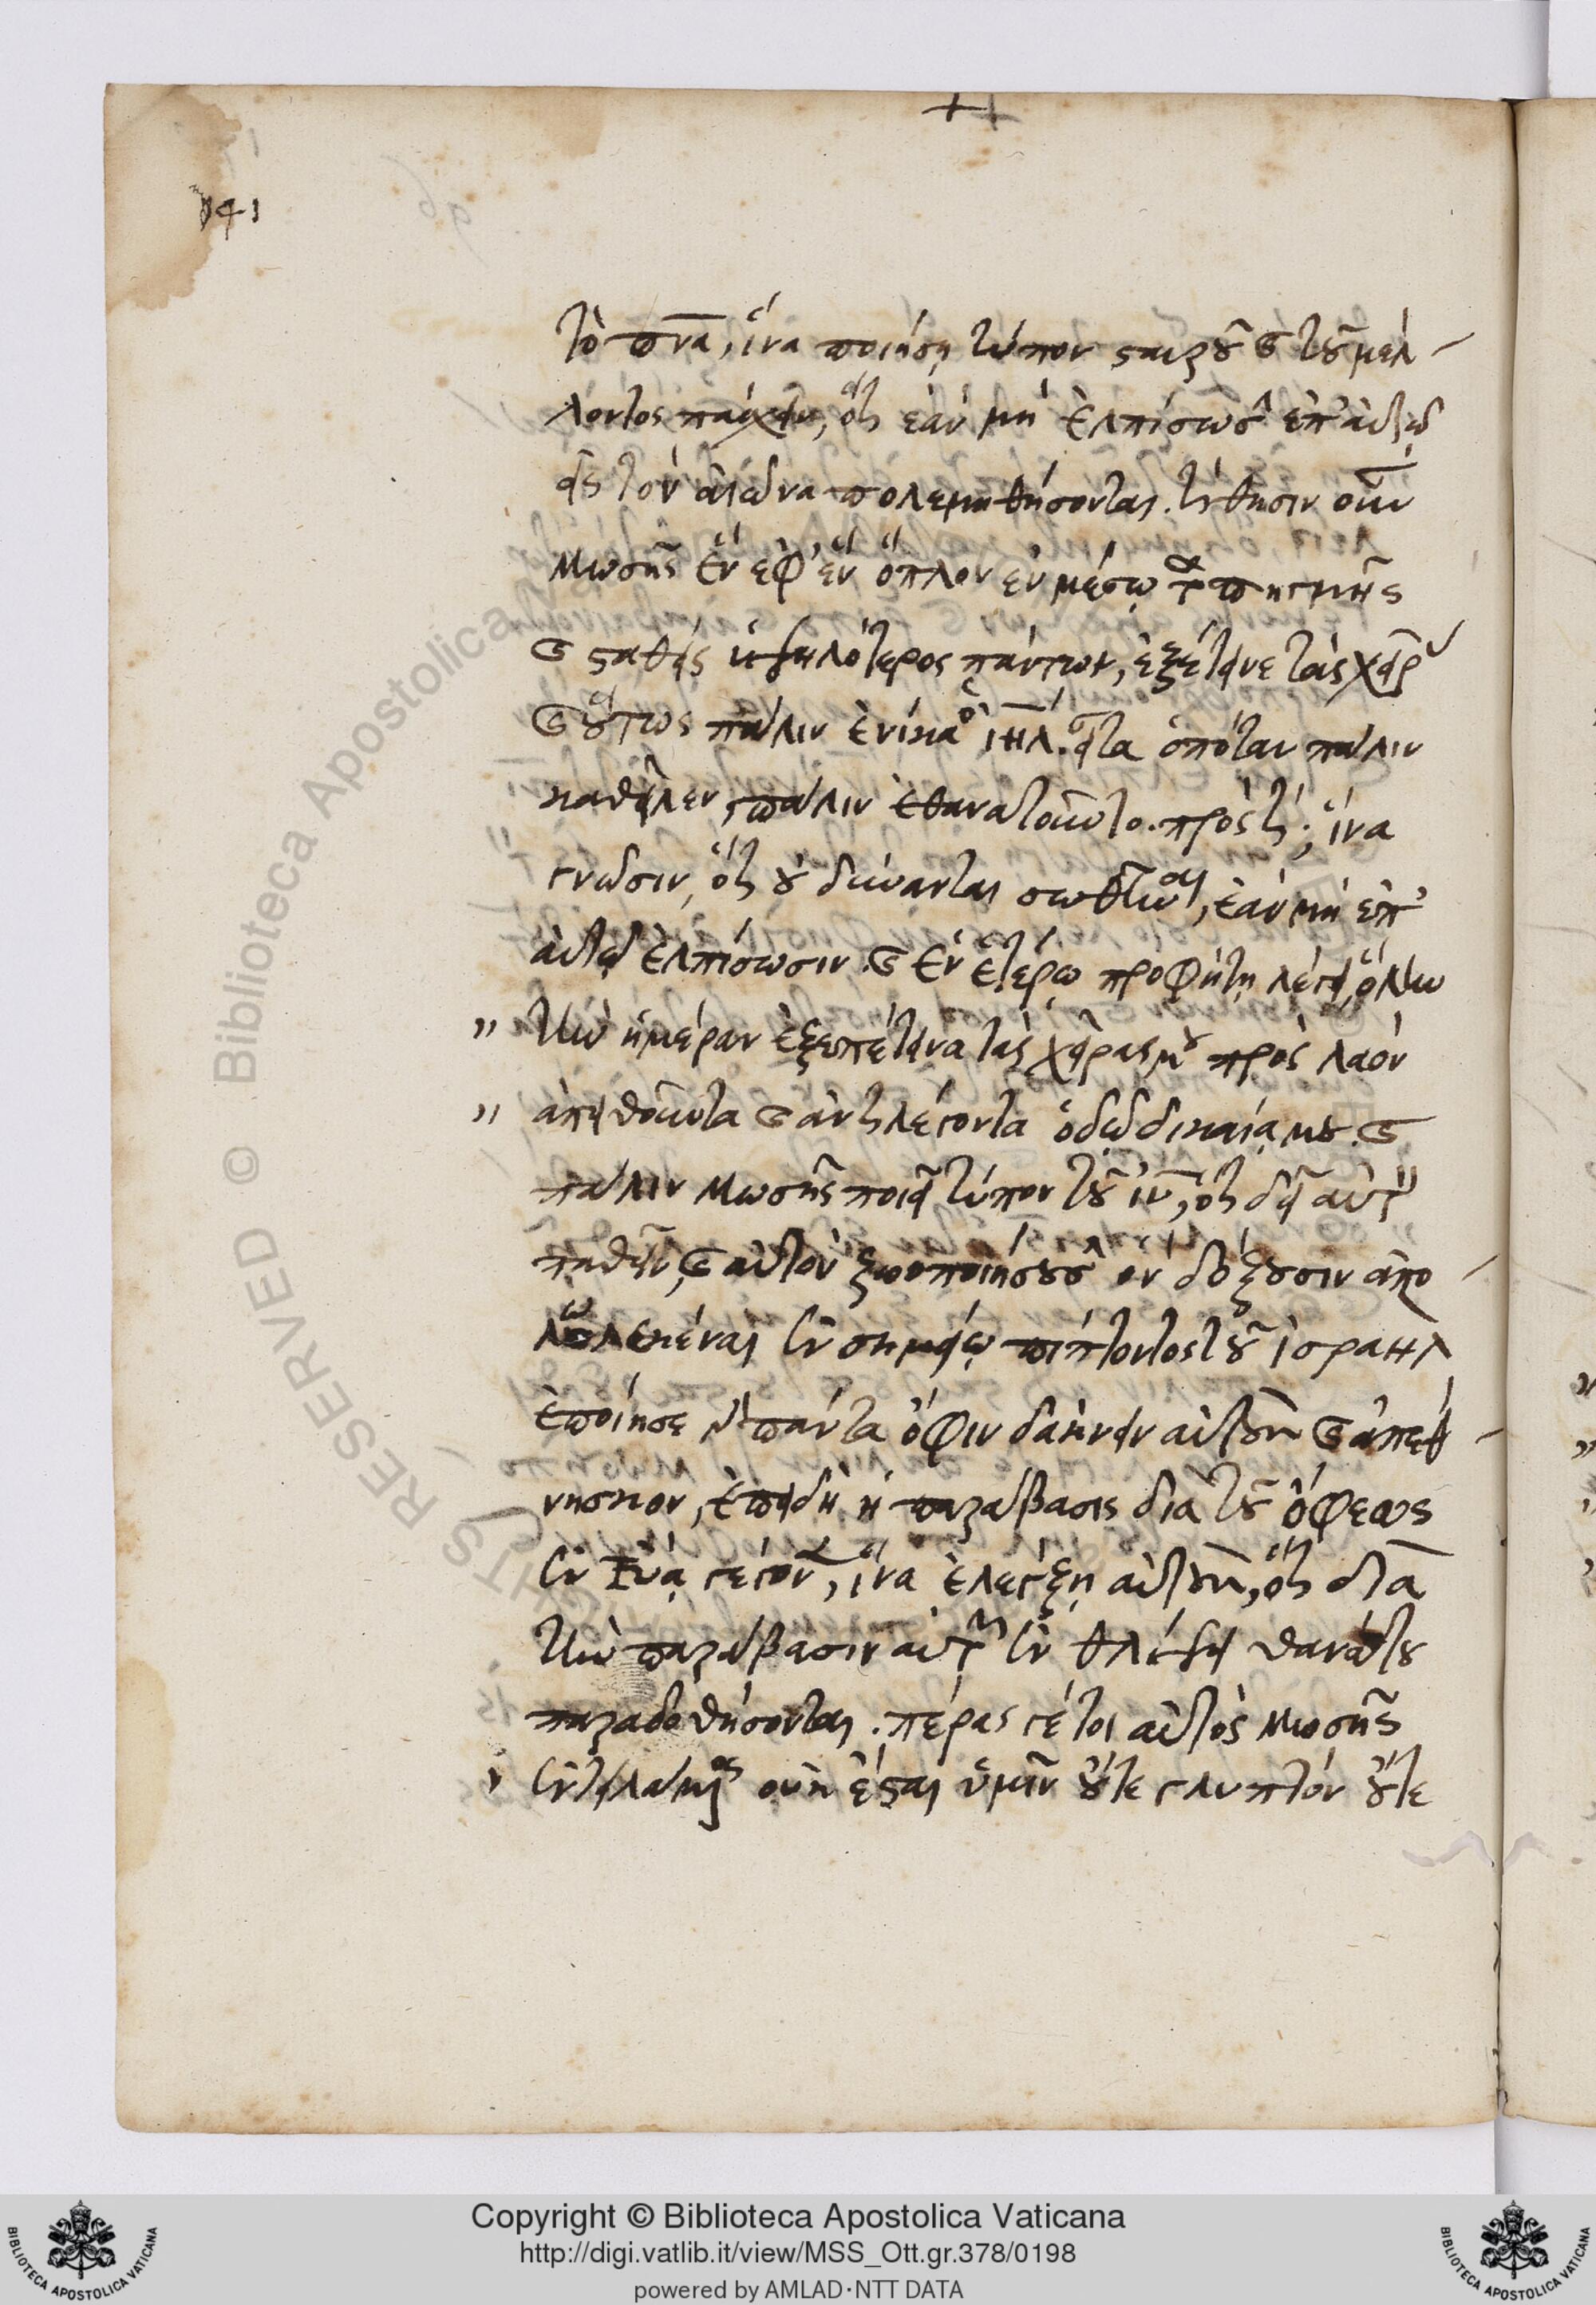 141
τὸ πνα, ἵνα ποιήσῃ τύπον σταυροῦ καὶ τοῦ μέλ-
λοντος πάσχειν, ὅτι ἐὰν μὴ ἐλπίσωσιν ἐπ' αὐτῷ
εἰς τὸν αἰῶνα πολεμηθήσονται. τίθησιν οὖν
Μωσῆς ἓν ἐφ' ἓν ὅπλον ἐν μέσῳ τῆς πηγμῆς
καὶ σταθεὶς ὑψηλότερος πάντων, ἐξέτεινε τὰς χεῖρ
καὶ οὕτως πάλιν ἐνίκα ὁ ιηλ. εἶτα ὁπόταν πάλιν
καθεῖλεν, πάλιν ἐθανατοῦντο. πρὸς τί; ἵνα
γνῶσιν, ὅτι οὐ δύνανται σωθῆναι, ἐὰν μὴ ἐπ'
αὐτῷ ἐλπίσωσιν. καὶ ἐν ἑτέρῳ προφήτῃ λέγει, ὅλην
" τὴν ἡμέραν ἐξεπέτεινα τὰς χεῖρας μου πρὸς λαὸν
" ἀπειθοῦντα καὶ ἀντιλέγοντα ὁδῷ δικαίᾳ μου. καὶ
πάλιν Μωσῆς ποιεῖ τύπον τοῦ ιυ, ὅτι δεῖ αὐτὸν
παθεῖν, καὶ αὐτὸν ζωοποιήσουσιν ὃν δόξουσιν ἀπο-
λωλεκέναι ἐν σημείῳ πίπτοντος τοῦ ἰσραηλ
ἐποίησε γὰρ πάντα ὄφιν δάκνειν αὐτοὺς καὶ ἀπέθ-
νησκον, ἐπειδὴ ἡ παράβασις διὰ τοῦ ὄφεως
ἐν Εὔᾳ γέγονεν, ἵνα ἐλέγξῃ αὐτοὺς, ὅτι διὰ
τὴν παράβασιν αὐτῶν ἐν θλίψει θανάτου
παραδοθήσονται. πέρας γέ τοι αὐτὸς Μωσῆς
" ἐντειλάμενος οὐκ ἔσται ὑμῖν οὔτε γλυπτὸν οὔτε
RIGHTS RESERVED © Biblioteca Apostolica
Copyright © Biblioteca Apostolica Vaticana
http://digi.vatlib.it/view/MSS_Ott.gr.378/0198
powered by AMLAD·NTT DATA
BIBLIOTECA APOSTOLICA VATICANA
BIBLIOTECA APOSTOLICA VATICANA